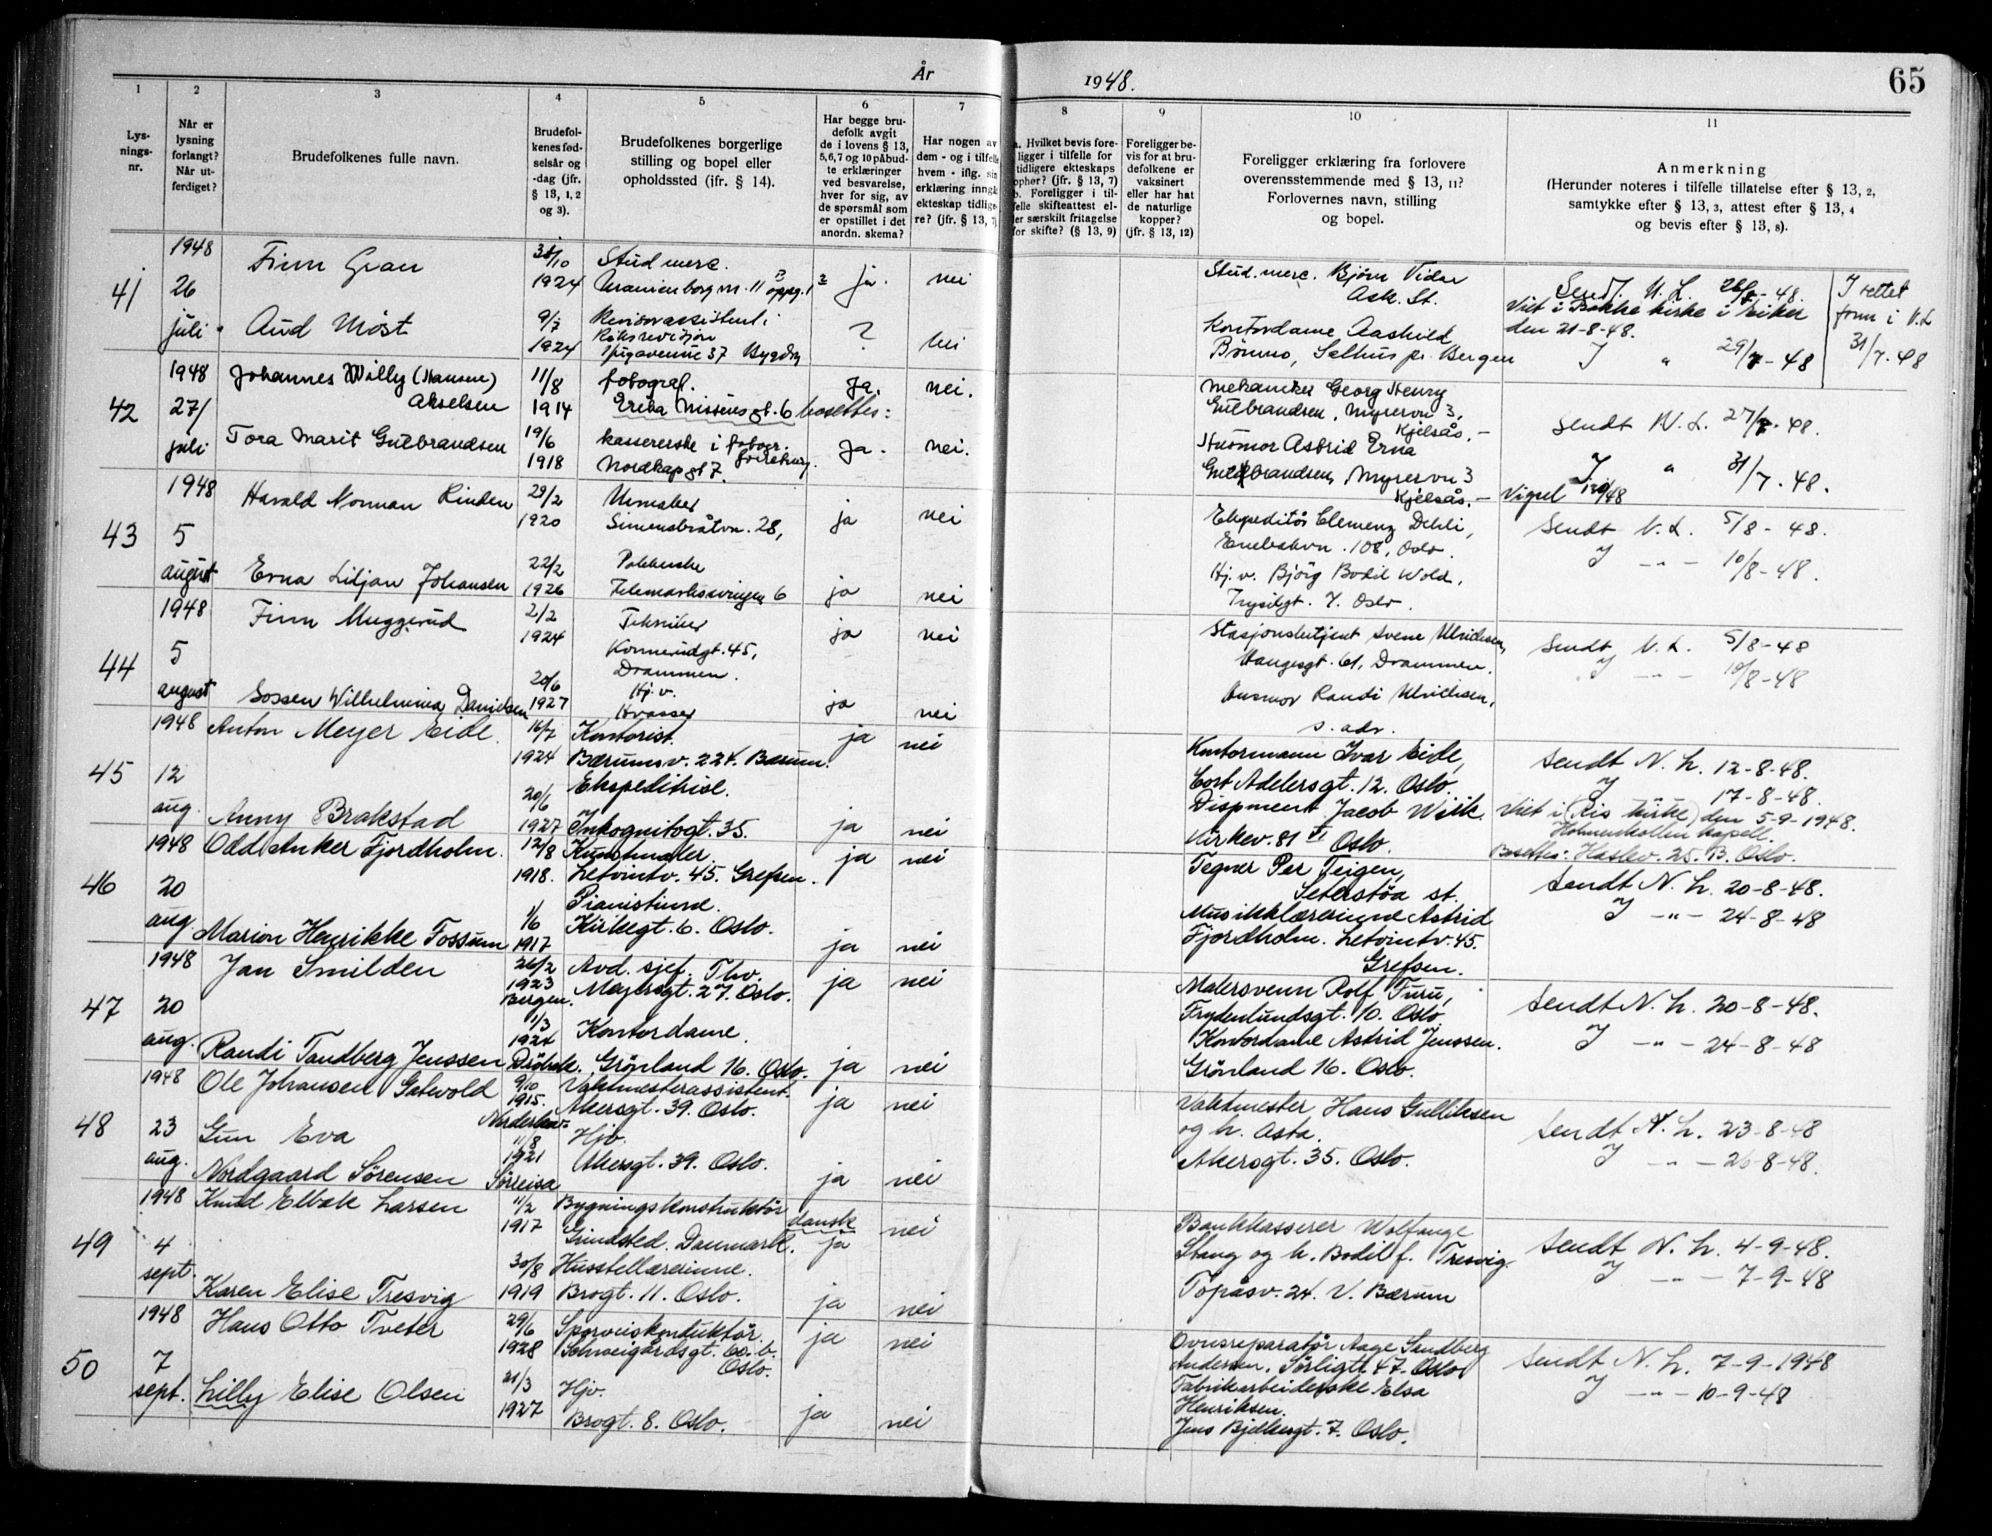 År 1948.
65
1
2
3
4
5
6
7
8
9
10
11
Lys-
nings-
nr.
Når er
lysning
forlangt?
Når ut-
ferdiget?
Brudefolkenes fulle navn.
Brudefol-
kenes fød-
selsår og
-dag (jfr.
§ 13, 1, 2
og 3).
Brudefolkenes borgerlige
stilling og bopel eller
opholdssted (jfr. § 14).
Har begge bru-
defolk avgit
de i lovens § 13,
5, 6, 7 og 10 påbud-
te erklæringer
ved besvarelse,
hver for sig, av
de spørsmål som
er opstillet i det
anordn. skema?
Har nogen av
dem - og i tilfelle
hvem - iflg. sin
erklæring inngk
ekteskap tidlige-
re? (jfr. § 13, 7)
a. Hvilket bevis fore-
ligger i tilfelle for
tidligere ekteskaps
ophør? (jfr. § 13, 7)
b. Foreligger i til-
felle skifteattest el-
ler særskilt fritagelse
for skifte? (§ 13, 9)
Foreligger be-
vis for at bru-
defolkene er
vaksinert
eller har hat
de naturlige
kopper?
(jfr. § 13, 12)
Foreligger erklæring fra forlovere
overensstemmende med § 13, 11?
Forlovernes navn, stilling
og bopel.
Anmerkning
(Herunder noteres i tilfelle tillatelse efter § 13, 2,
samtykke efter § 13, 3, attest efter § 13, 4
og bevis efter § 13, 8).
41
1948
26
juli
Finn Gran
1924
Stud merc.
Uranienborgv. 11 B oppg. 1
ja.
nei
Stud. merc. Bjørn Vidar
Ask. St.
Sendt N. L. 26/7-48.
Viet i Bakke kirke i Eiker
den 21-8-48.
I rettet
form i N.L
31/7.48
Aud Møst
9/7
1924
Revisorassistent i
Riksrevisjon
Bygdøy
?
nei
Kontordame Aashild
Bønno, Salhus pr. Bergen
I " 29/7-48
42
1948
27/
juli
Johannes Willy (Hansen)
Akselsen
11/8
1914
fotograf.
Erika Nissens gt. 6 bosettes:
Ja.
nei.
Mekaniker Georg Henry
Gulbrandsen, Myrervn 3,
Kjelsås.-
Sendt N. L. 27/7-48.
Tora Marit Gulbrandsen
19/6
1918
kassererske i fotogr.
Nordkapgt 7.
Ja.
nei.
Husmor Astrid Erna
Gulbrandsen, Myrervn 3
Kjelsås.-
I " 31/7.48.
Vigsel
43
1948
5
august
Harald Norman Rinden
29/2
1920
Urmaker
Simensbråtvn. 28,
ja
nei
Ekspeditør Clemenz Dehli,
Enebakvn. 108, Oslo.
Sendt N. L. 5/8-48.
Erna Liljan Johansen
22/2
1926
Pakkerske
Telemarkssvingen 6
ja
nei
Hj. v. Bjørg Bodil Wold,
Trysilgt. 7. Oslo.
I -"- 10/8-48.
44
1948
5
august
Finn Muggerud
2/2
1924
Tekniker
Konnerudgt. 45,
Drammen.
ja
nei
Stasjonsbetjent Svenn Ulrichsen,
Haugesgt. 61, Drammen.
Sendt N. L. 5/8-48
Sossen Wilhelmina Danielsen
20/6
1927
Hj. v.
Kvasser
ja
nei
Husmor Randi Ulrichsen,
s. adr.
I -"- 10/8-48
45
1948
12
aug.
Anton Meyer Eide.
16/7
1924
Kontorist.
Bærumsv. 224. Bærum.
ja
nei
Kontormann Ivar Eide,
Cort Adelersgt. 12. Oslo.
Sendt N. L. 12-8-48.
Anny Brakstad
20/6
1927
Ekspeditrise.
Inkognitogt. 35.
ja
nei
Dispment Jacob Wiik.
Kirkev. 81 VI Oslo.
I 17-8-48.
Viet i (Ris kirke) den 5-9-1948.
Holmenkollen kapell.
Bosettes: Haslev. 25. B. Oslo.
46
1948
20
aug.
Odd Anker Fjordholm.
12/8
1918.
Kunstmaler.
Letvintv. 45. Grefsen.
ja
nei
Tegner Per Teigen,
Seterstøa st.
Sendt N. L. 20-8-48.
Marion Henrikke Fossum
1/6
1917
Pianistinne.
Kirkegt. 6. Oslo.
ja
nei
Musikklærerinne Astrid
Fjordholm. Letvintv. 45.
Grefsen.
I -"- 24-8-48
47
1948
20
aug.
Jan Smilden
26/2
1923
Bergen.
Avd. sjef. Thv.
Meyersgt. 27. Oslo.
ja
nei
Malersvenn Rolf Furu,
Frydenlundsgt. 10. Oslo
Sendt N. L. 20-8-48.
Randi Tandberg Jenssen
1/3
1924
Drøbak.
Kontordame.
Grönland 16. Oslo.
ja
nei
Kontordame Astrid Jenssen.
Grönland 16. Oslo.
I -"- 24-8-48
48
1948
23
aug.
Ole Johansen Gatvold
9/10
1915.
Vaktmesterassistent.
Akersgt. 39. Oslo.
ja
nei
Vaktmester Hans Gulliksen
og h. Asta.
Akersgt. 35. Oslo.
Sendt N. L. 23-8-48
Gun Eva
Nordgaard Sørensen
11/8
1921
Sørreisa
Hjv.
Akersgt. 39. Oslo.
ja
nei
I -"- 26-8-48.
49
1948
4
sept.
Knud Elbæk Larsen
11/2
1917
Bygningskonstruktör
Grindsted. Danmark.
dansk
ja
nei
Bankkasserer Wolfange
Stang og h. Bodil f. Tresvig.
Topåsv. 24. V. Bærum
Sendt N. L. 4-9-48.
Karen Elise Tresvig
30/8
1919
Husstellærerinne.
Brogt. 11. Oslo.
ja
nei
I -"- 7-9-48
50
1948
7
sept.
Hans Otto Tveter
29/6
1928
Sporveiskonduktör.
Schweigårdsgt. 60. b.
Oslo.
ja
nei
Ovnsreparatør Aage Sandberg
Andersen. Sörligt. 47. Oslo
Sendt N. L. 7-9-1948
Lilly Elise Olsen
21/3
1927
Hjv.
Brogt. 8. Oslo.
ja
nei
Fabrikarbeiderske Elsa
Henriksen.
Jens Bjelkesgt. 7. Oslo.
I -"- 10-9-48